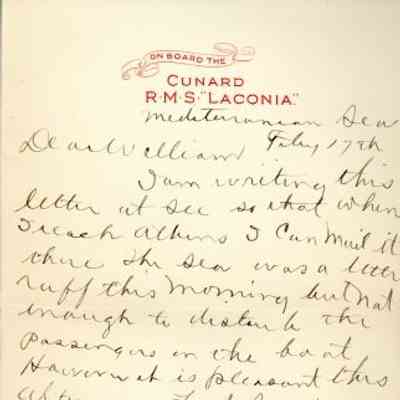 ON BOARD THE
CUNARD
R·M·S·"LACONIA."
Mediterranian Sea
Feby 17th
Dear William
I am writing this
letter at see so that when
I reach Athens I Can Mail it
there The Sea was a little
ruff this Morning but Not
enough to disturb the
passengers on the boat
However it is pleasant this